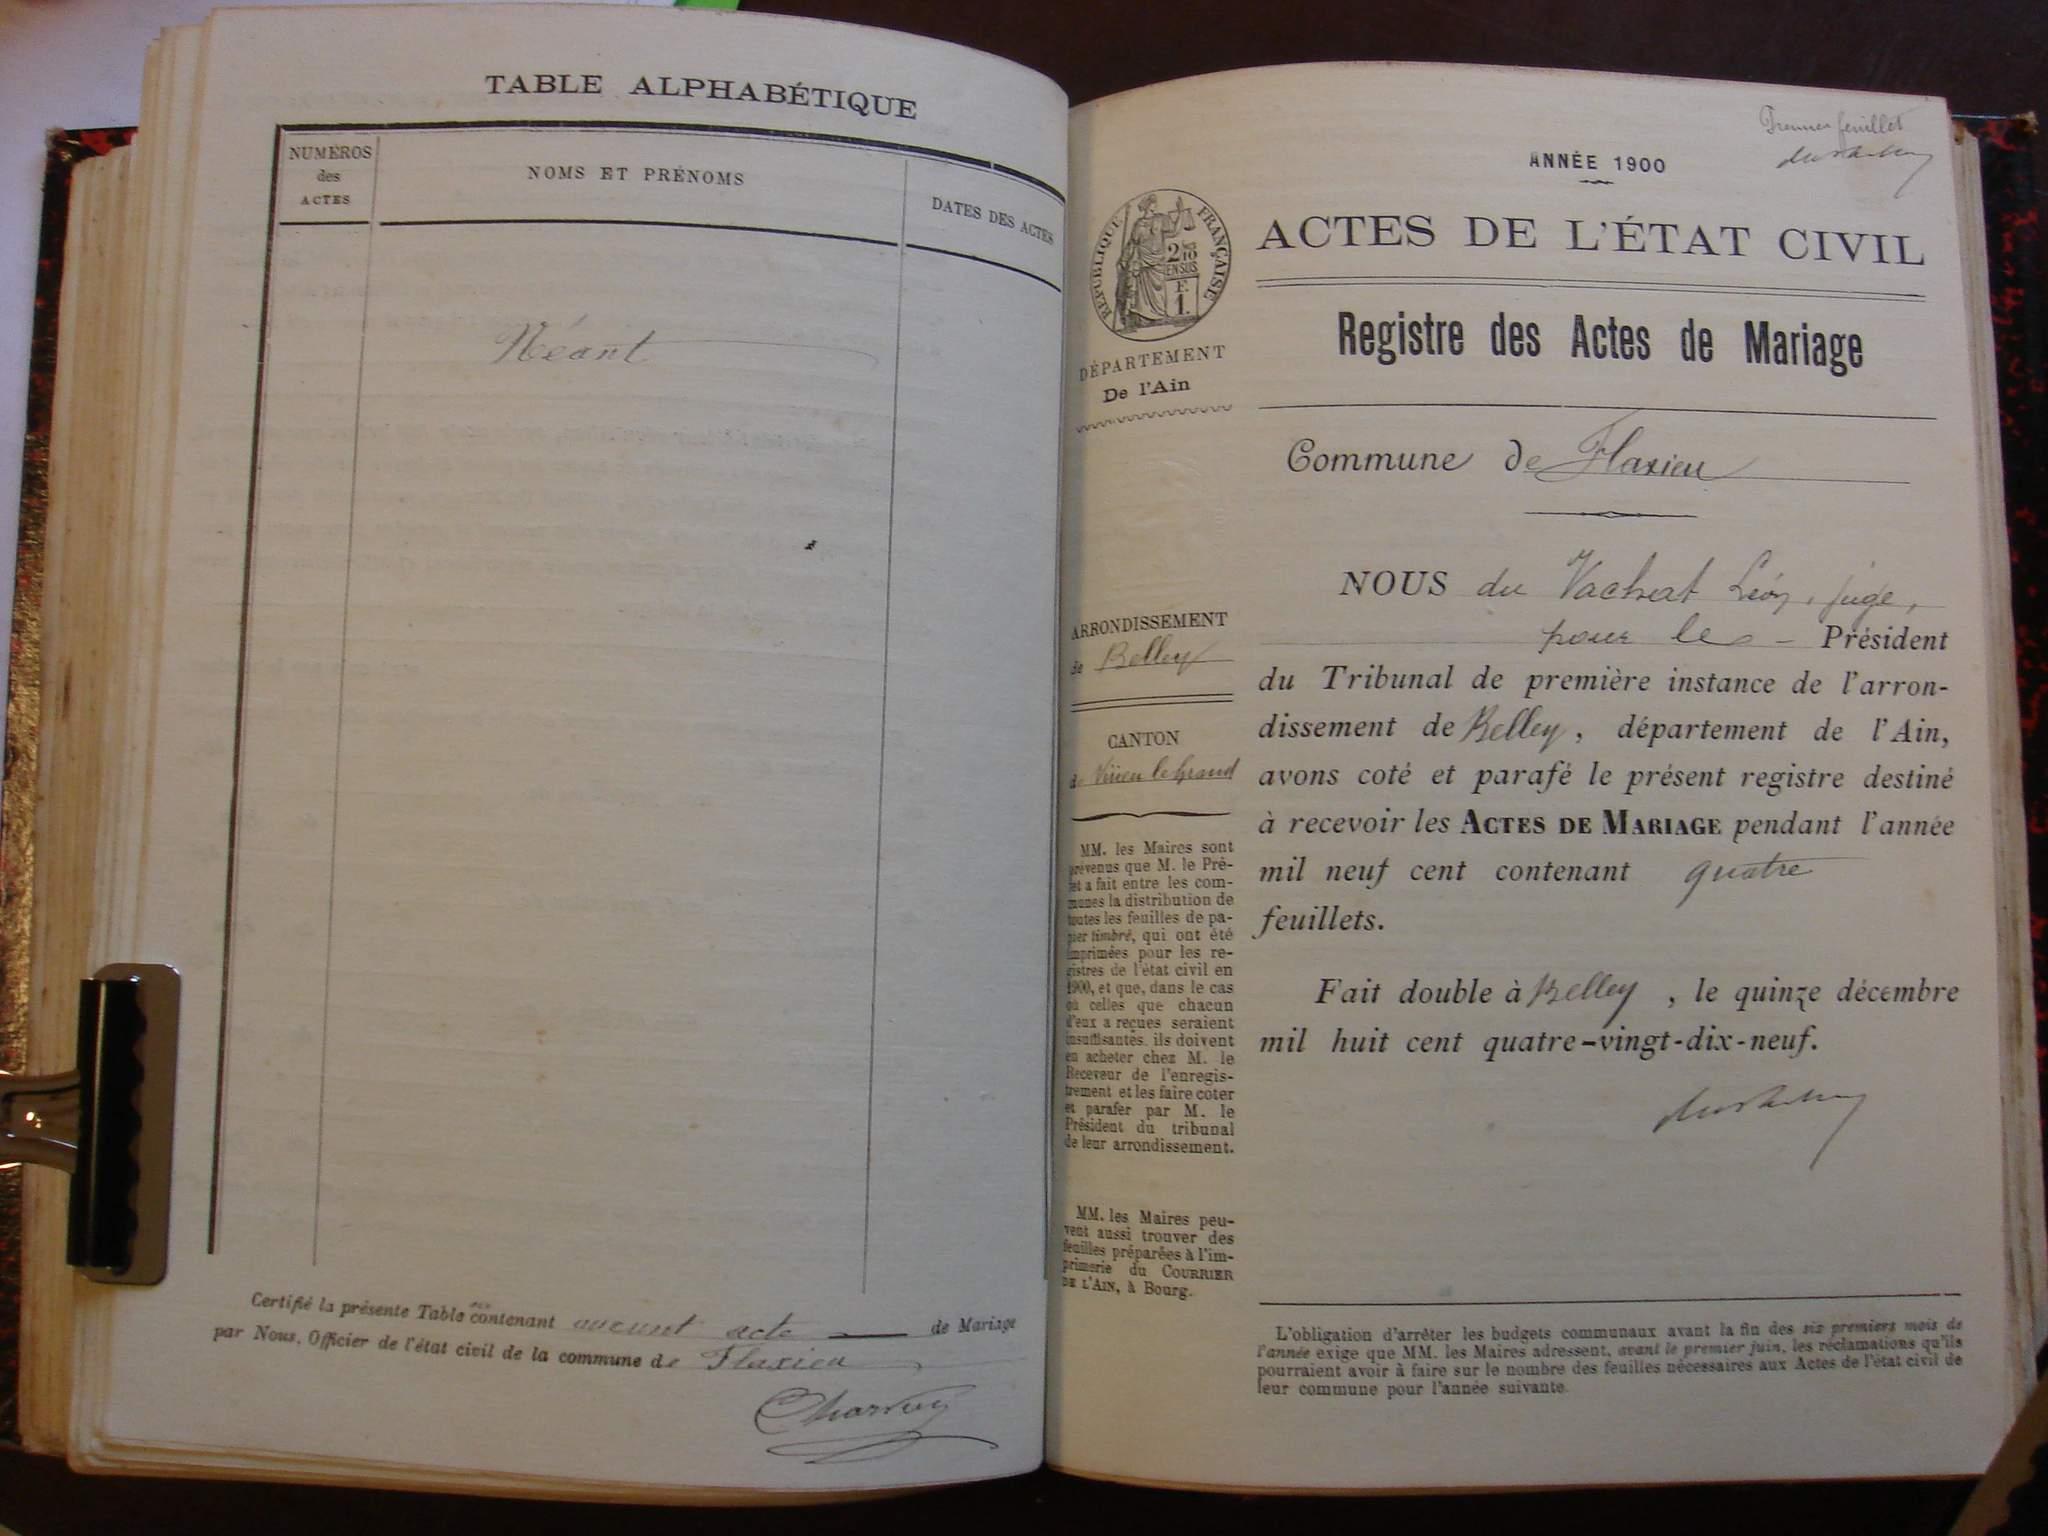 TABLE ALPHABÉTIQUE
NUMÉROS
des
ACTES
NOMS ET PRÉNOMS
DATES DES ACTES
Néant
Certifié la présente Table contenant aucunt acte de Mariage
par Nous, Officier de l'état civil de la commune de Flaxieu
Premier feuillet
ANNÉE 1900
RÉPUBLIQUE FRANÇAISE
2/10
EN SUS
F.
1.
ACTES DE L'ÉTAT CIVIL
Registre des Actes de Mariage
DÉPARTEMENT
De l'Ain
Commune de Flaxieu
ARRONDISSEMENT
de Belley
CANTON
de Virieu le Grand
MM. les Maires sont
prévenus que M. le Pré-
fet a fait entre les com-
munes la distribution de
toutes les feuilles de pa-
pier timbré, qui ont été
imprimées pour les re-
gistres de l'état civil en
1900, et que, dans le cas
où celles que chacun
d'eux a reçues seraient
insuffisantes, ils doivent
en acheter chez M. le
Receveur de l'enregis-
trement et les faire coter
et parafer par M. le
Président du tribunal
de leur arrondissement.
MM. les Maires peu-
vent aussi trouver des
feuilles préparées à l'im-
primerie du COURRIER
DE L'AIN, à Bourg.
NOUS du Vachat Léon, juge,
pour le Président
du Tribunal de première instance de l'arron-
dissement de Belley, département de l'Ain,
avons coté et parafé le présent registre destiné
à recevoir les ACTES DE MARIAGE pendant l'année
mil neuf cent contenant quatre
feuillets.
Fait double à Belley, le quinze décembre
mil huit cent quatre-vingt-dix-neuf.
L'obligation d'arrêter les budgets communaux avant la fin des six premiers mois de
l'année exige que MM. les Maires adressent, avant le premier juin, les réclamations qu'ils
pourraient avoir à faire sur le nombre des feuilles nécessaires aux Actes de l'état civil de
leur commune pour l'année suivante.